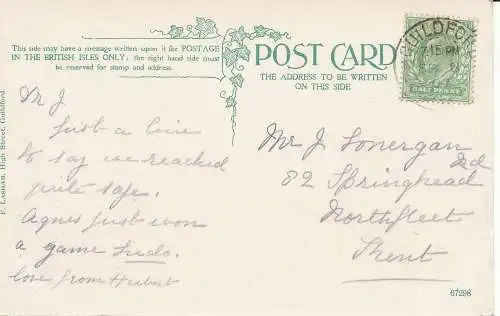 This side may have a message written upon it for POSTAGE
IN THE BRITISH ISLES ONLY; the right hand side must
be reserved for stamp and address.
POST CARD
THE ADDRESS TO BE WRITTEN
ON THIS SIDE.
GUILDFORD
7.15 PM
HALFPENNY
M J
Just a line
to say we reached
quite safe.
Agnes just won
a game Ludo.
love from Hubert
Mr J. Lonergan
82 Springhead Rd
Northfleet
Kent
F. Lasham, High Street, Guildford.
67298